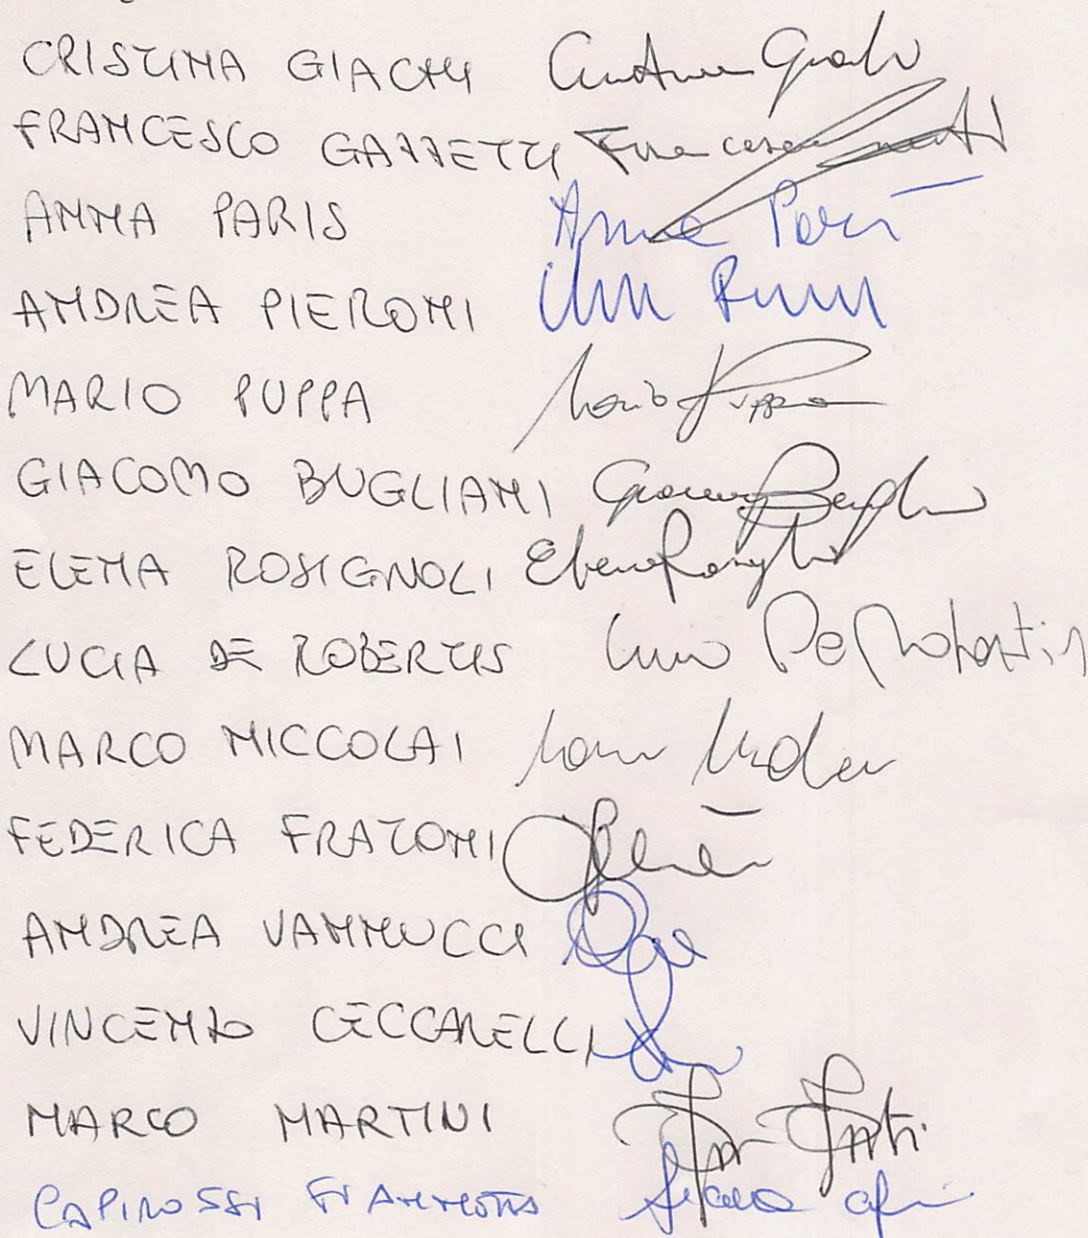 CRISTINA GIACHI Cristina Giachi
FRANCESCO GAZZETTI Francesco
ANNA PARIS Anna Paris
ANDREA PIERONI
MARIO PUPPA Mario Puppa
GIACOMO BUGLIANI Giacomo Bugliani
ELENA ROSIGNOLI Elena Rosignoli
LUCIA DE ROBERTIS Lucia De Robertis
MARCO NICCOLAI Marco Niccolai
FEDERICA FRATONI
ANDREA VANNUCCI
VINCENZO CECCARELLI
MARCO MARTINI
CAPIROSSI FIAMMETTA